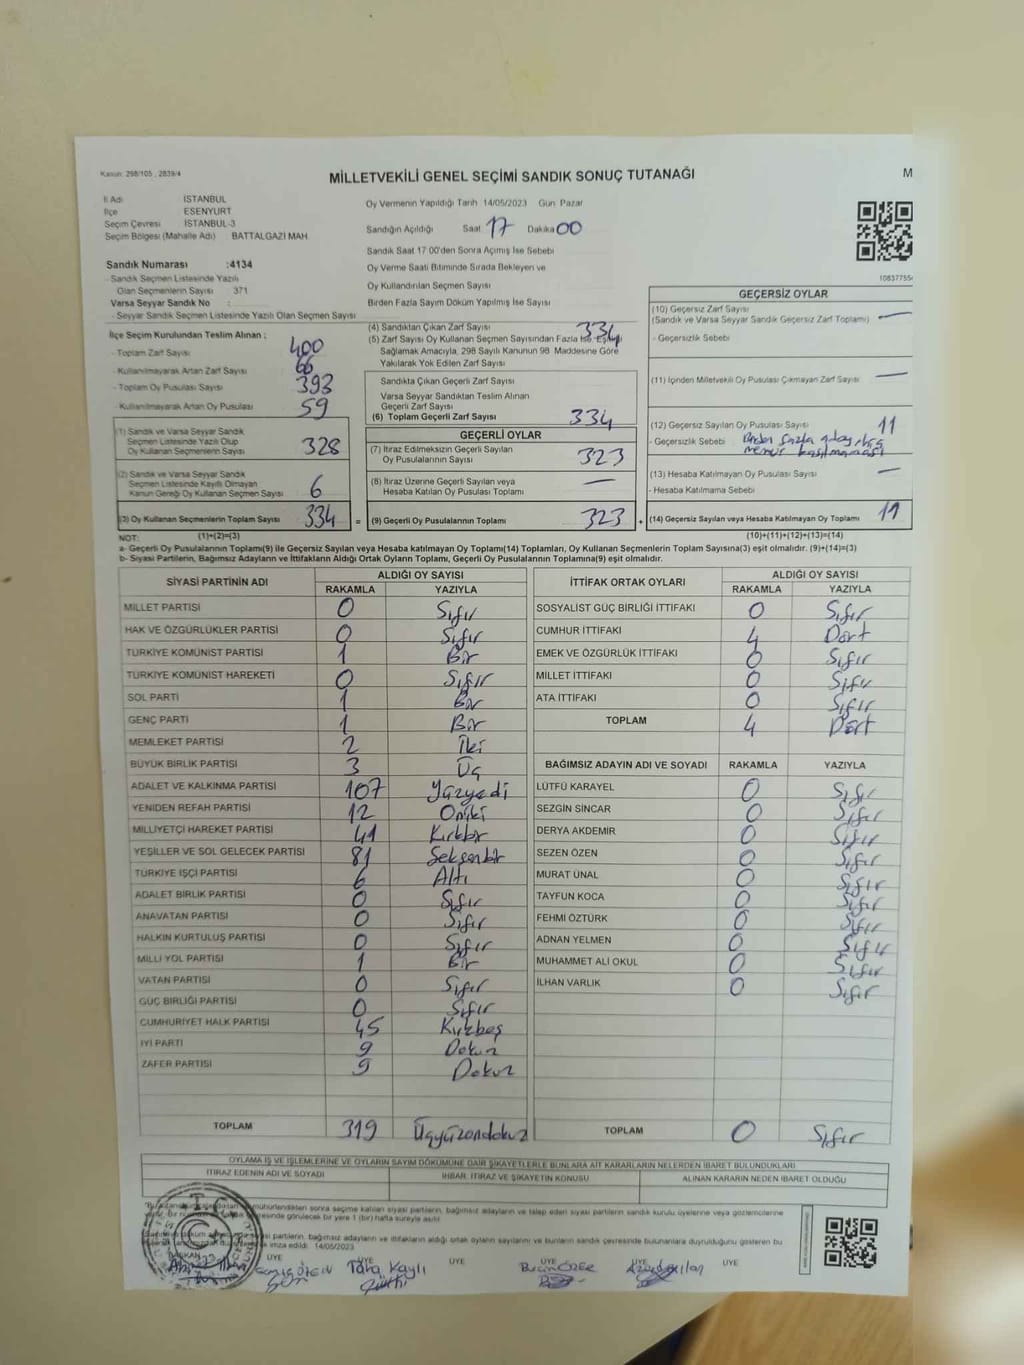 Kanun: 298/105 , 2839/4
MİLLETVEKİLİ GENEL SEÇİMİ SANDIK SONUÇ TUTANAĞI
M
İl Adı İSTANBUL
İlçe ESENYURT
Seçim Çevresi İSTANBUL-3
Seçim Bölgesi (Mahalle Adı) BATTALGAZİ MAH.
Sandık Numarası :4134
- Sandık Seçmen Listesinde Yazılı
Olan Seçmenlerin Sayısı 371
Varsa Seyyar Sandık No :
- Seyyar Sandık Seçmen Listesinde Yazılı Olan Seçmen Sayısı
Oy Vermenin Yapıldığı Tarih 14/05/2023 Gün Pazar
Sandığın Açıldığı Saat 17 Dakika 00
Sandık Saat 17 00'den Sonra Açılmış İse Sebebi
Oy Verme Saati Bitiminde Sırada Bekleyen ve
Oy Kullandırılan Seçmen Sayısı
Birden Fazla Sayım Döküm Yapılmış İse Sayısı
İlçe Seçim Kurulundan Teslim Alınan :
- Toplam Zarf Sayısı 400
- Kullanılmayarak Artan Zarf Sayısı 66
- Toplam Oy Pusulası Sayısı 393
- Kullanılmayarak Artan Oy Pusulası 59
(1) Sandık ve Varsa Seyyar Sandık
Seçmen Listesinde Yazılı Olup
Oy Kullanan Seçmenlerin Sayısı 328
(2) Sandık ve Varsa Seyyar Sandık
Seçmen Listesinde Kayıtlı Olmayan
Kanun Gereği Oy Kullanan Seçmen Sayısı 6
(3) Oy Kullanan Seçmenlerin Toplam Sayısı 334 =
(1)+(2)=(3)
(4) Sandıktan Çıkan Zarf Sayısı 334
(5) Zarf Sayısı Oy Kullanan Seçmen Sayısından Fazla İse, Eşitliği
Sağlamak Amacıyla, 298 Sayılı Kanunun 98 Maddesine Göre
Yakılarak Yok Edilen Zarf Sayısı
Sandıkta Çıkan Geçerli Zarf Sayısı
Varsa Seyyar Sandıktan Teslim Alınan
Geçerli Zarf Sayısı
(6) Toplam Geçerli Zarf Sayısı 334
GEÇERLİ OYLAR
(7) İtiraz Edilmeksizin Geçerli Sayılan
Oy Pusulalarının Sayısı 323
(8) İtiraz Üzerine Geçerli Sayılan veya
Hesaba Katılan Oy Pusulası Toplamı —
(9) Geçerli Oy Pusulalarının Toplamı 323 +
GEÇERSİZ OYLAR
(10) Geçersiz Zarf Sayısı
(Sandık ve Varsa Seyyar Sandık Geçersiz Zarf Toplamı) —
- Geçersizlik Sebebi
(11) İçinden Milletvekili Oy Pusulası Çıkmayan Zarf Sayısı —
(12) Geçersiz Sayılan Oy Pusulası Sayısı 11
- Geçersizlik Sebebi Birden fazla
(13) Hesaba Katılmayan Oy Pusulası Sayısı —
- Hesaba Katılmama Sebebi
(14) Geçersiz Sayılan veya Hesaba Katılmayan Oy Toplamı 11
(10)+(11)+(12)+(13)=(14)
NOT:
a- Geçerli Oy Pusulalarının Toplamı(9) ile Geçersiz Sayılan veya Hesaba katılmayan Oy Toplamı(14) Toplamları, Oy Kullanan Seçmenlerin Toplam Sayısına(3) eşit olmalıdır. (9)+(14)=(3)
b- Siyasi Partilerin, Bağımsız Adayların ve İttifakların Aldığı Ortak Oyların Toplamı, Geçerli Oy Pusulalarının Toplamına(9) eşit olmalıdır.
SİYASİ PARTİNİN ADI ALDIĞI OY SAYISI
RAKAMLA YAZIYLA
MİLLET PARTİSİ 0 Sıfır
HAK VE ÖZGÜRLÜKLER PARTİSİ 0 Sıfır
TÜRKİYE KOMÜNİST PARTİSİ 1 Bir
TÜRKİYE KOMÜNİST HAREKETİ 0 Sıfır
SOL PARTİ 1 Bir
GENÇ PARTİ 1 Bir
MEMLEKET PARTİSİ 2 İki
BÜYÜK BİRLİK PARTİSİ 3 Üç
ADALET VE KALKINMA PARTİSİ 107 Yüzyedi
YENİDEN REFAH PARTİSİ 12 Oniki
MİLLİYETÇİ HAREKET PARTİSİ 41 Kırkbir
YEŞİLLER VE SOL GELECEK PARTİSİ 81 Seksenbir
TÜRKİYE İŞÇİ PARTİSİ 6 Altı
ADALET BİRLİK PARTİSİ 0 Sıfır
ANAVATAN PARTİSİ 0 Sıfır
HALKIN KURTULUŞ PARTİSİ 0 Sıfır
MİLLİ YOL PARTİSİ 1 Bir
VATAN PARTİSİ 0 Sıfır
GÜÇ BİRLİĞİ PARTİSİ 0 Sıfır
CUMHURİYET HALK PARTİSİ 45 Kırkbeş
İYİ PARTİ 9 Dokuz
ZAFER PARTİSİ 9 Dokuz
TOPLAM 319 Üçyüzondokuz
İTTİFAK ORTAK OYLARI ALDIĞI OY SAYISI
RAKAMLA YAZIYLA
SOSYALİST GÜÇ BİRLİĞİ İTTİFAKI 0 Sıfır
CUMHUR İTTİFAKI 4 Dört
EMEK VE ÖZGÜRLÜK İTTİFAKI 0 Sıfır
MİLLET İTTİFAKI 0 Sıfır
ATA İTTİFAKI 0 Sıfır
TOPLAM 4 Dört
BAĞIMSIZ ADAYIN ADI VE SOYADI RAKAMLA YAZIYLA
LÜTFÜ KARAYEL 0 Sıfır
SEZGİN SİNCAR 0 Sıfır
DERYA AKDEMİR 0 Sıfır
SEZEN ÖZEN 0 Sıfır
MURAT ÜNAL 0 Sıfır
TAYFUN KOCA 0 Sıfır
FEHMİ ÖZTÜRK 0 Sıfır
ADNAN YELMEN 0 Sıfır
MUHAMMET ALİ OKUL 0 Sıfır
İLHAN VARLIK 0 Sıfır
TOPLAM 0 Sıfır
OYLAMA İŞ VE İŞLEMLERİNE VE OYLARIN SAYIM DÖKÜMÜNE DAİR ŞİKAYETLERLE BUNLARA AİT KARARLARIN NELERDEN İBARET BULUNDUKLARI
İTİRAZ EDENİN ADI VE SOYADI İHBAR, İTİRAZ VE ŞİKAYETİN KONUSU ALINAN KARARIN NEDEN İBARET OLDUĞU
mühürlendikten sonra seçime katılan siyasi partilerin, bağımsız adayların ve talep eden siyasi partilerin sandık kurulu üyelerine veya gözlemcilerine
görülebilir bir yere 1 (bir) hafta süreyle asılır
siyasi partilerin, bağımsız adayların ve ittifakların aldığı ortak oyların sayılarını ve bunların sandık çevresinde bulunanlara duyrulduğunu gösteren bu
imza edildi. 14/05/2023
BAŞKAN ÜYE ÜYE ÜYE ÜYE ÜYE ÜYE
Taha Kaylı